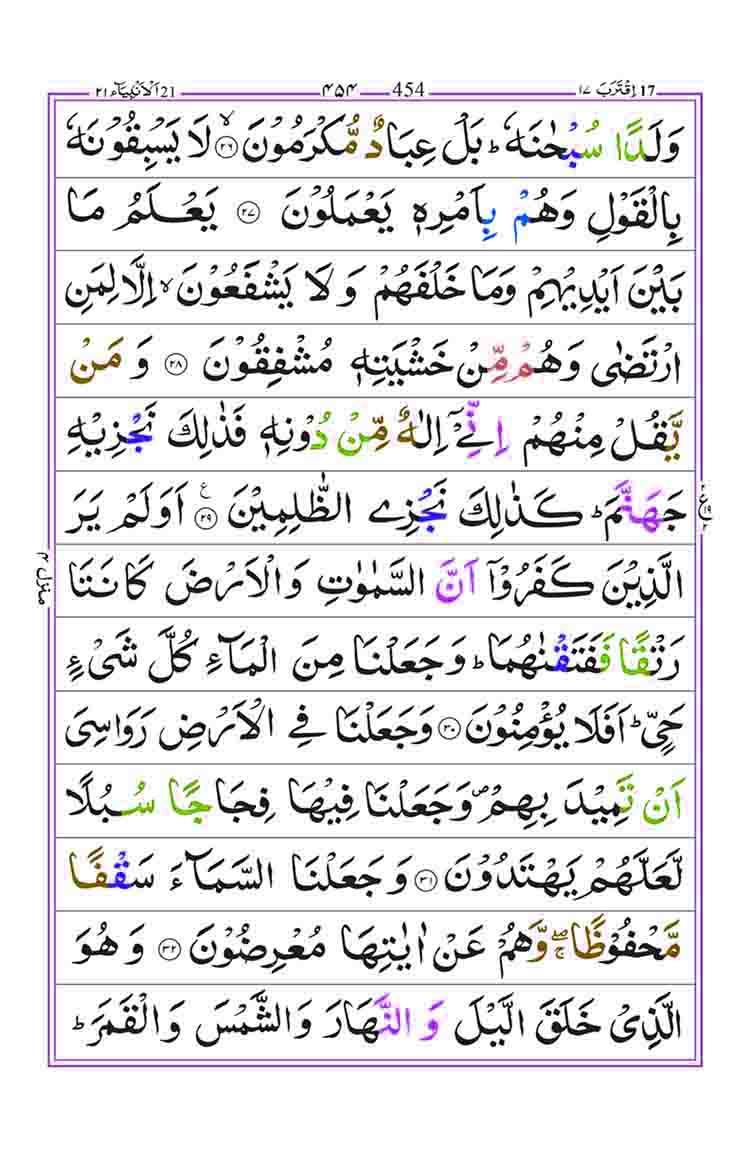 اِقْتَرَبَ ١٧ 17 454 ۴۵۴ 21 اَلْاَنْۢبِيَآء ٢١
وَلَدًا سُبْحٰنَهٗ ؕ بَلْ عِبَادٌ مُّكْرَمُوْنَ ۙ‏ ﴿۲۶﴾ لَا يَسْبِقُوْنَهٗ
بِالْقَوْلِ وَهُمْ بِاَمْرِهٖ يَعْمَلُوْنَ ﴿۲۷﴾ يَعْلَمُ مَا
بَيْنَ اَيْدِيْهِمْ وَمَا خَلْفَهُمْ وَ لَا يَشْفَعُوْنَ ۙ اِلَّا لِمَنِ
ارْتَضٰى وَهُمْ مِّنْ خَشْيَتِهٖ مُشْفِقُوْنَ ﴿۲۸﴾ وَ مَنْ
يَّقُلْ مِنْهُمْ اِنِّىْۤ اِلٰهٌ مِّنْ دُوْنِهٖ فَذٰلِكَ نَجْزِيْهِ
جَهَنَّمَ ؕ كَذٰلِكَ نَجْزِى الظّٰلِمِيْنَ ﴿۲۹﴾ ع اَوَلَمْ يَرَ
الَّذِيْنَ كَفَرُوْۤا اَنَّ السَّمٰوٰتِ وَالْاَرْضَ كَانَتَا
رَتْقًا فَفَتَقْنٰهُمَا ؕ وَجَعَلْنَا مِنَ الْمَآءِ كُلَّ شَىْءٍ
حَىٍّ ؕ اَفَلَا يُؤْمِنُوْنَ ﴿۳۰﴾ وَجَعَلْنَا فِى الْاَرْضِ رَوَاسِىَ
اَنْ تَمِيْدَ بِهِمْ ۪ وَجَعَلْنَا فِيْهَا فِجَاجًا سُبُلًا
لَّعَلَّهُمْ يَهْتَدُوْنَ ﴿۳۱﴾ وَ جَعَلْنَا السَّمَآءَ سَقْفًا
مَّحْفُوْظًا ۖۚ وَّهُمْ عَنْ اٰيٰتِهَا مُعْرِضُوْنَ ﴿۳۲﴾ وَ هُوَ
الَّذِىْ خَلَقَ الَّيْلَ وَ النَّهَارَ وَالشَّمْسَ وَالْقَمَرَ ؕ
منزل ۴